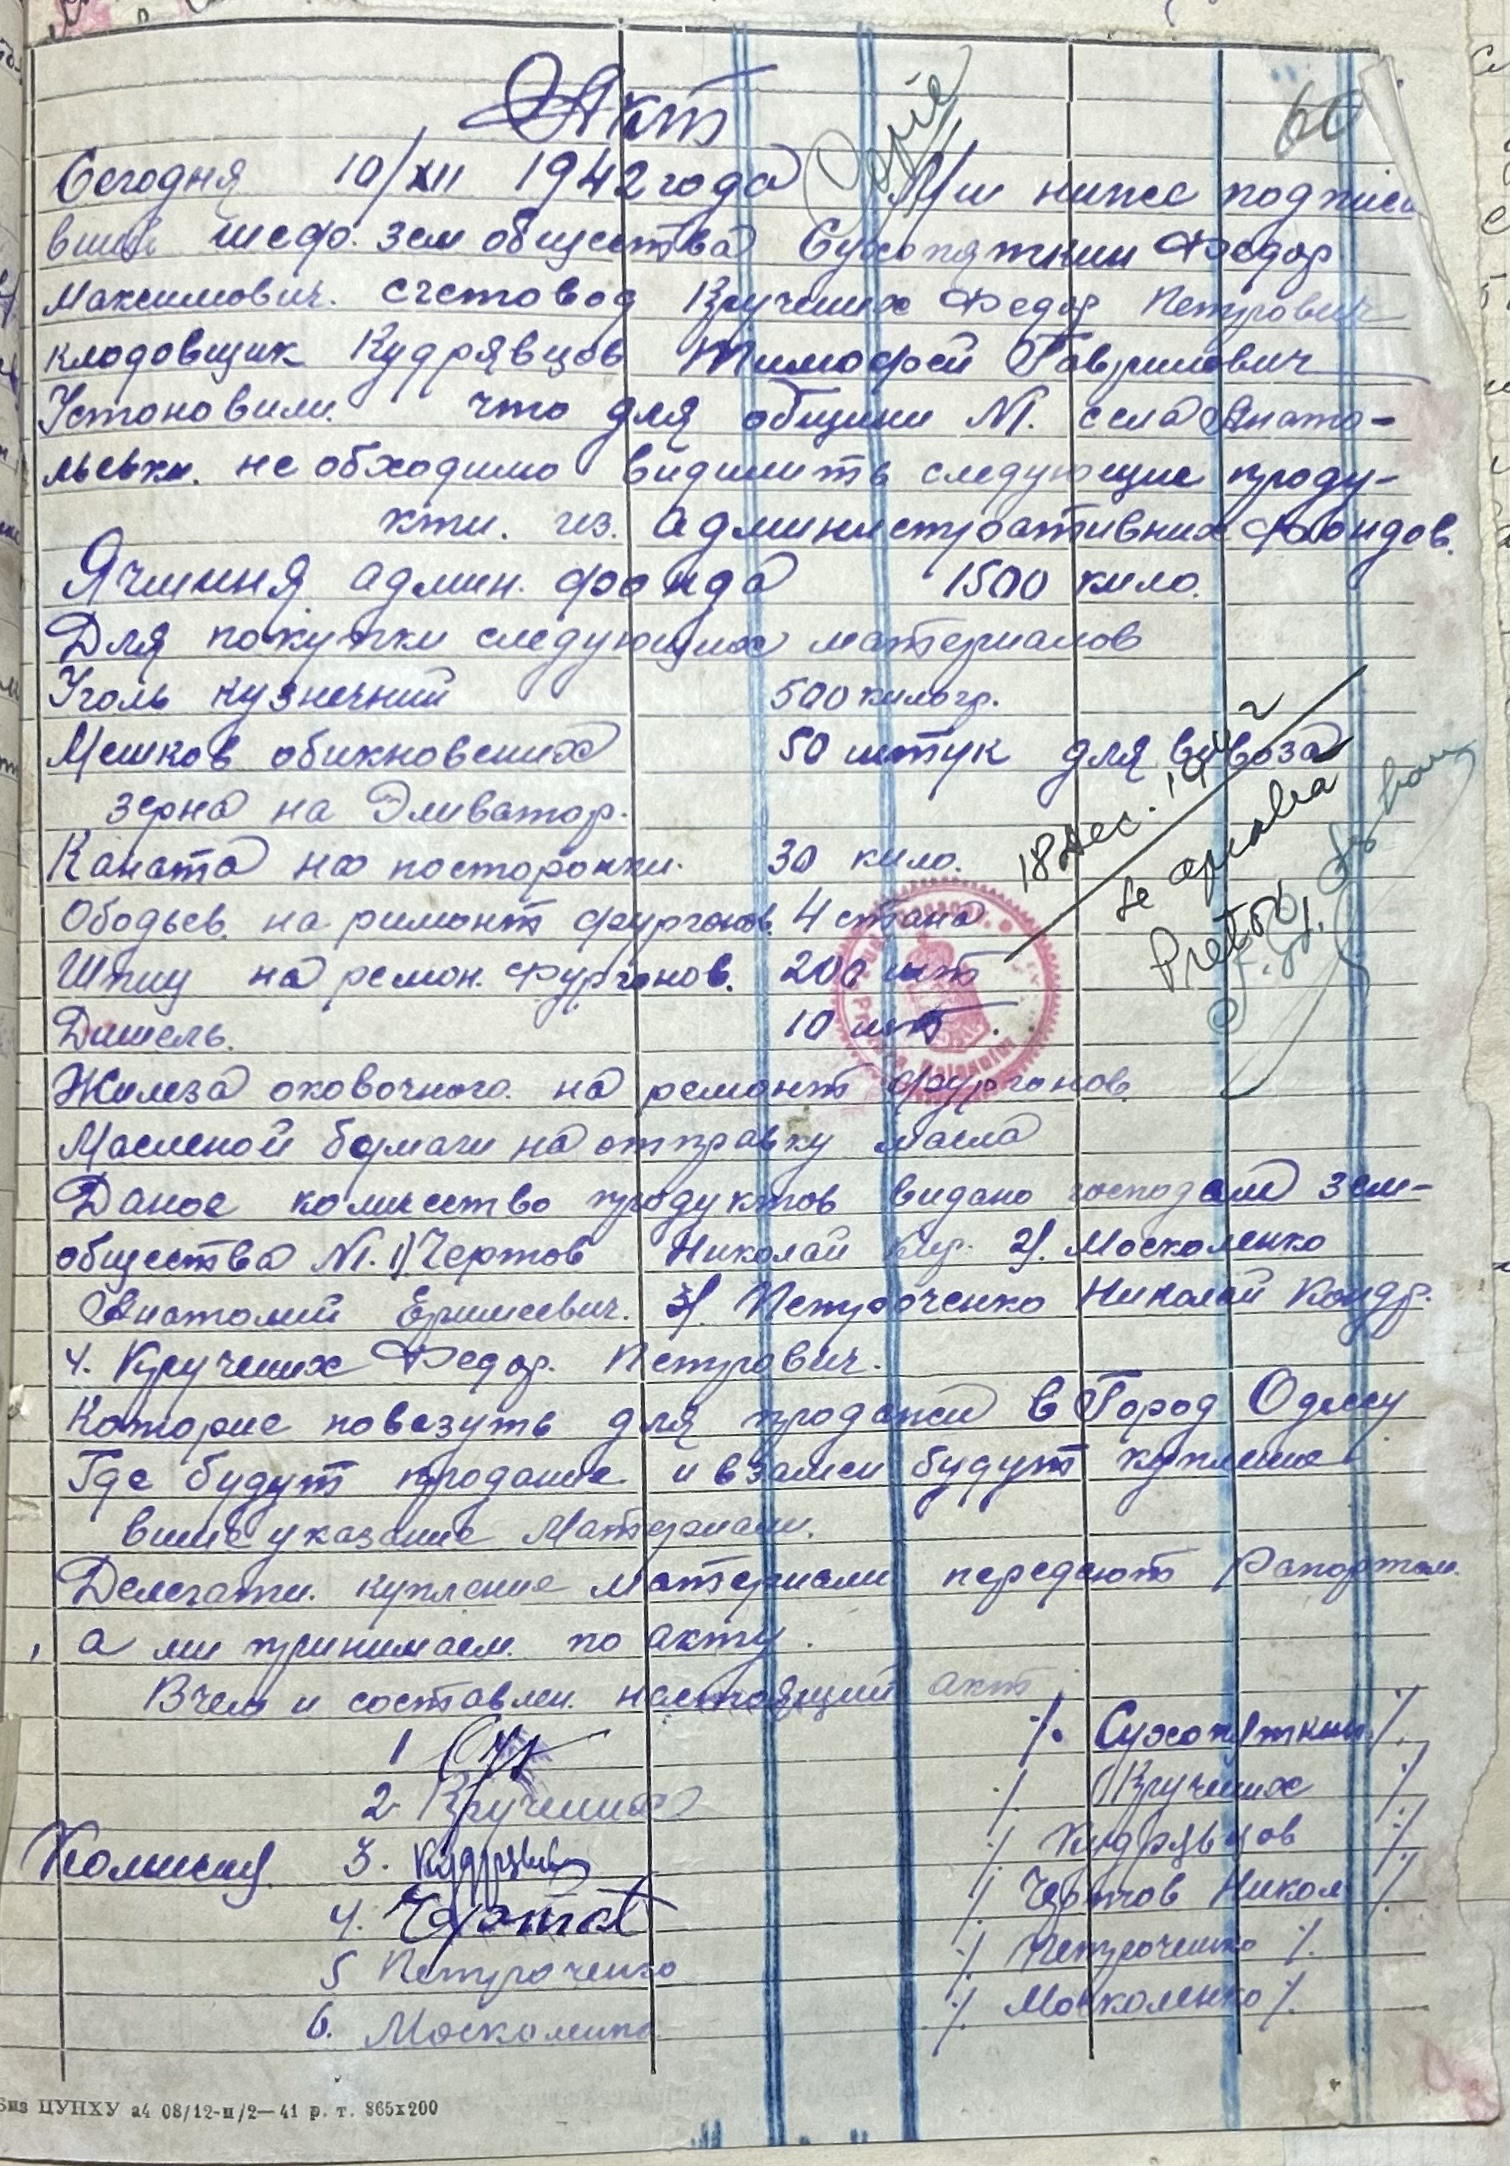 60
Акт
Copie
Сегодня 10/XII 1942 года Ми ниже подписа
вшие шеф. зем общества Сухопяткин Федор
Максимович. счетовод Кручених Федор Петрович
клодовщик Кудрявцов Тимофей Гаврилович
Устоновили. что для общини N1. села Анато-
льевки. необходимо видилить следующие проду-
кти. из. административних фондов.
Ячминя админ. фонда 1500 кило.
Для покупки следующих материалов
Уголь кузнечний 500 килогр.
Мешков обикновених 50 штук для вивоза
зерна на Эливатор.
Каната на посторонки. 30 кило.
Ободьев. на римонт фургонов. 4 стана
Шпиц на ремон. Фургонов. 200 шт
Дишель. 10 шт.
Железа оковочного. на ремонт фургонов.
Масленой бумаги на отправку масла
Даное количество продуктов видано господам зем-
общества N1. 1) Чертов Николай 2). Москаленко
Анатолий Еримеевич. 3). Петроченко Николай Кондр.
4. Кручених Федор. Петрович.
Которие повезуть для продажи в Город Одессу
Где будут продание и взамен будут купление
вишеуказание Материали.
Делегати. купление материали передают Рапортом.
, а ми принимаем. по акту.
Вчем и составлен. настоящий акт
18 Dec. 1942
se aproba
Pretor,
1 /. Сухопяткин /.
2. Кручених / Кручених /
Комисия 3. Кудрявцов /. Кудрявцов /.
4. Чертов /. Чертов Никол /.
5 Петроченко /. Петроченко /.
6. Москаленко /. Москаленко /.
ЦУНХУ а4 08/12-п/2—41 р. т. 865х200